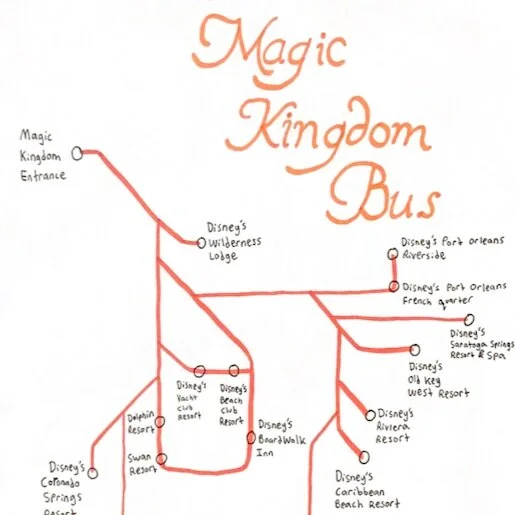 Magic
Kingdom
Bus
Magic
Kingdom
Entrance
Disney's
Wilderness
Lodge
Disney's Port Orleans
Riverside
Disney's Port Orleans
French quarter
Disney's
Saratoga Springs
Resort & Spa
Disney's
Old Key
West Resort
Disney's
Yacht
Club
Resort
Disney's
Beach
Club
Resort
Dolphin
Resort
Disney's
BoardWalk
Inn
Disney's
Riviera
Resort
Swan
Resort
Disney's
Coronado
Springs
Resort
Disney's
Caribbean
Beach Resort